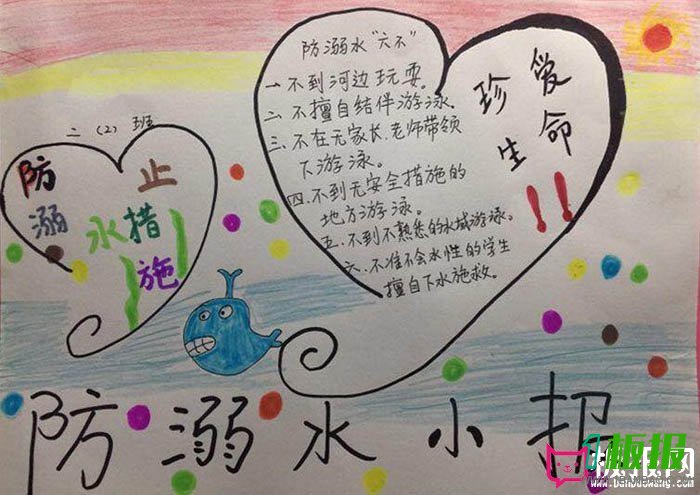 防溺水“六不”
一 不到河边玩耍。
二 不擅自结伴游泳。
三 不在无家长、老师带领
下游泳。
四、不到无安全措施的
地方游泳。
五、不到不熟悉的水域游泳。
六、不准不会水性的学生
擅自下水施救。
珍爱
生命
!!
二(2)班
防止
溺
水措
施
防溺水小报
板报网
www.banbaowang.com